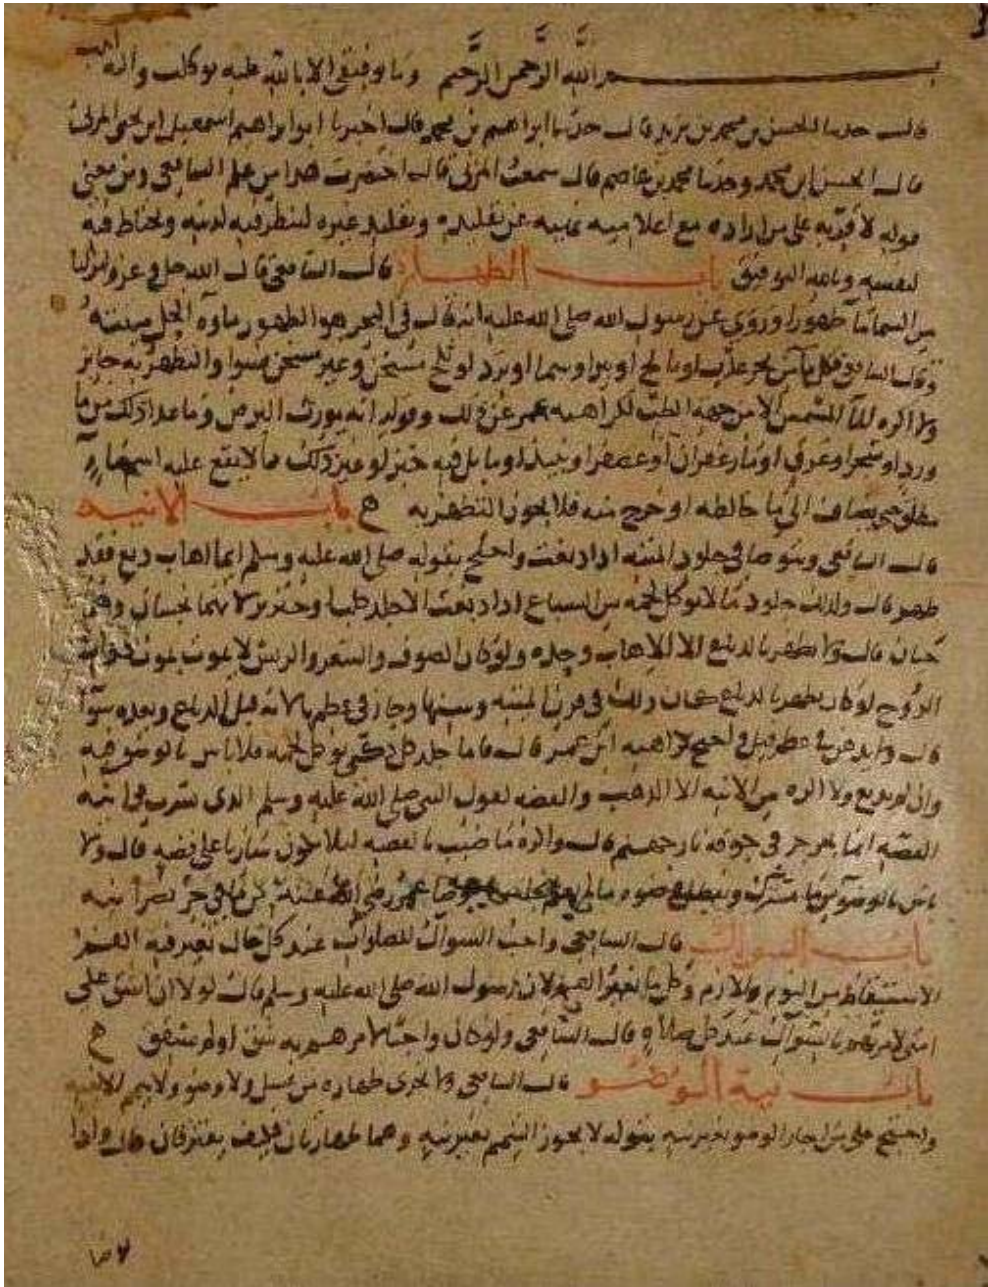 بسم الله الرحمن الرحيم وما توفيقي الا بالله عليه توكلت واليه انيب
قال حدثنا الحسن بن محمد بن يزيد قال حدثنا ابراهيم بن محمد قال اخبرنا ابو ابراهيم اسمعيل ابن يحيى المزني
قال الحسن ابن محمد وحدثنا محمد بن عاصم قال سمعت المزني قال اختصرت هذا من علم الشافعي ومن معنى
قوله لأقربه على من اراده مع اعلاميه نهيه عن تقليده وتقليد غيره لينظر فيه لدينه ويحتاط فيه
لنفسه وبالله التوفيق باب الطهارة قال الشافعي قال الله جل وعز وانزلنا
من السما ما طهورا وروي عن رسول الله صلى الله عليه انه قال في البحر هو الطهور ماوه الحل ميتته
وقال الشافعي فكل ما من بحر عذب او مالح او بير او سما او برد او ثلج مسخن وغير مسخن فسوا والتطهر به جايز
ولا اكره الما المشمس الا من جهة الطب لكراهية عمر عن ذلك وقوله انه يورث البرص وما عدا ذلك من ما
ورد او شجر او عرق او ما زعفران او عصفر او نبيذ او ما بل فيه خبز او غير ذلك مما لا يقع عليه اسم ما
مطلق حتى يضاف الى ما خالطه او خرج منه فلا يجوز التطهر به باب الانية
قال الشافعي ويتوضا في جلود الميتة اذا دبغت واحتج بقوله صلى الله عليه وسلم ايما اهاب دبغ فقد
طهر قال وكذلك جلود ما لا يوكل لحمه من السباع اذا دبغت الا جلد كلب او خنزير لانهما نجسان وهما
حيان قال ولا يطهر بالدبغ الا الاهاب وحده ولو كان الصوف والشعر والريش لا يموت بموت ذوات
الروح او كان يطهر بالدباغ كان ذلك في قرن الميتة وسنها وجاز في عظمها لانه قبل الدباغ وبعده سوا
قال ولا يدهن في عظم فيل واحتج لكراهية ابن عمر قال فاما جلد كل ذكي يوكل لحمه فلا باس بالوضو فيه
وان لم يدبغ ولا اكره من الانية الا الذهب والفضة لقول النبي صلى الله عليه وسلم الذي يشرب في انية
الفضة انما يجرجر في جوفه نار جهنم قال واكره ما ضبب بالفضة ليلا يكون شاربا على فضة قال ولا
باس بالوضو من ما مشرك وبفضل وضوه ما لم يعلم نجاسته توضا عمر رضي الله عنه من ما في جر نصرانية
باب السواك قال الشافعي واحب السواك للصلوات عند كل حال تغير فيه الفم
الاستيقاظ من النوم والازم وكل ما يغير الفم لان رسول الله صلى الله عليه وسلم قال لولا ان اشق على
امتي لامرتهم بالسواك عند كل صلاة قال الشافعي ولو كان واجبا لامرهم به شق او لم يشق
باب نية الوضو قال الشافعي ولا يجزى طهارة من غسل ولا وضو ولا تيمم الا بنية
واحتج على من اجاز الوضو بغير نية بقوله لا يجوز التيمم بغير نية وهما طهارتان فكيف يفترقان قال واذا